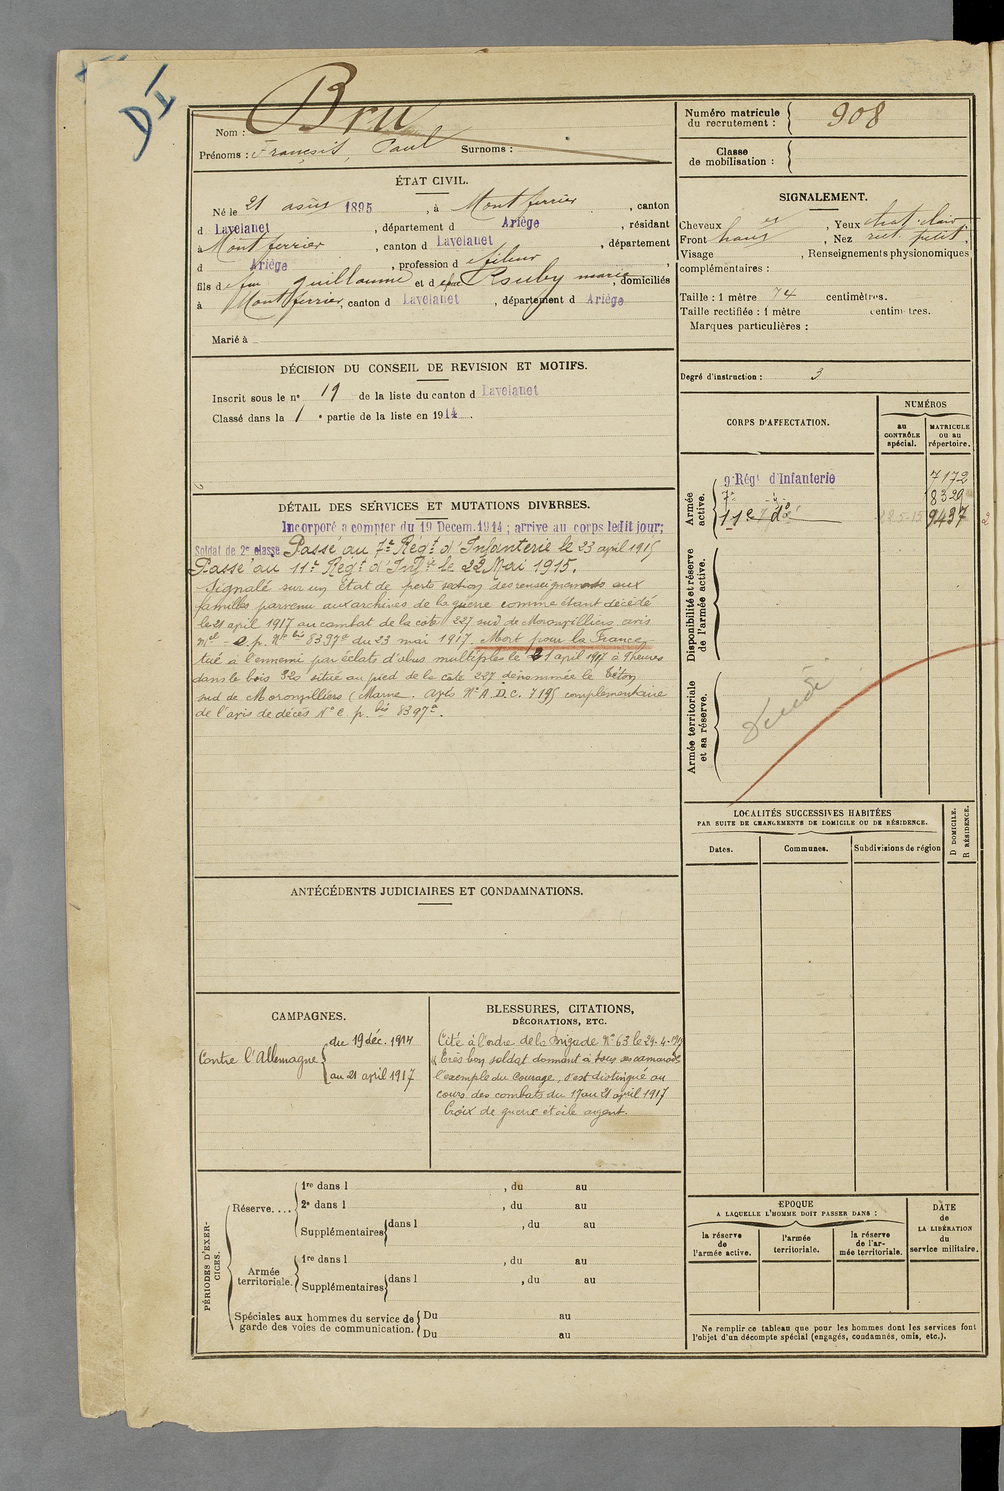 DI
Nom : Bru
Prénoms : François, Paul Surnoms :
Numéro matricule du recrutement : 908
Classe de mobilisation :
ÉTAT CIVIL.
Né le 21 août 1895, à Montferrier, canton
d Lavelanet, département d Ariège, résidant
à Montferrier, canton d Lavelanet, département
d Ariège, profession d fileur,
fils de feu Guillaume et de feue Rouby marie, domiciliés
à Montferrier, canton d Lavelanet, département d Ariège
Marié à
SIGNALEMENT.
Cheveux , Yeux chat. clair
Front haut , Nez rect. petit.
Visage , Renseignements physionomiques
complémentaires :
Taille : 1 mètre 74 centimètres.
Taille rectifiée : 1 mètre centimètres.
Marques particulières :
Degré d'instruction : 3
DÉCISION DU CONSEIL DE REVISION ET MOTIFS.
Inscrit sous le n° 19 de la liste du canton d Lavelanet
Classé dans la 1e partie de la liste en 1914.
CORPS D'AFFECTATION.
NUMÉROS
au CONTRÔLE spécial.
MATRICULE ou au répertoire.
Armée active.
9e Régt d'Infanterie 7172
7e d° 8329
11e d° 22-5-15 9437
2
Disponibilité et réserve de l'armée active.
Armée territoriale et sa réserve.
Décédé
DÉTAIL DES SERVICES ET MUTATIONS DIVERSES.
Incorporé a compter du 19 Decem. 1914 ; arrive au corps ledit jour;
Soldat de 2e classe Passé au 7e Régt d'Infanterie le 23 avril 1915
Passé au 11e Régt d'Inftie le 22 Mai 1915.
Signalé sur un Etat de perte section des renseignements aux
familles parvenu aux archives de la guerre comme étant décédé
le 21 avril 1917 au combat de la cote 227 sud de Moronvilliers avis
mel e. p. N° bis 8397a du 23 mai 1917. Mort pour la France
tué à l'ennemi par éclats d'obus multiples le 21 avril 1917 à 9 heures
dans le bois 320 situé au pied de la cote 227 dénommée le Téton
sud de Moronvilliers (Marne. avis N° A.D.C. 7195 complémentaire
de l'avis de décès N° e. p. bis 8397a.
LOCALITÉS SUCCESSIVES HABITÉES
PAR SUITE DE CHANGEMENTS DE DOMICILE OU DE RÉSIDENCE.
Dates. Communes. Subdivisions de région
D DOMICILE.
R RÉSIDENCE.
ANTÉCÉDENTS JUDICIAIRES ET CONDAMNATIONS.
CAMPAGNES.
Contre l'Allemagne
du 19 déc. 1914
au 21 avril 1917
BLESSURES, CITATIONS,
DÉCORATIONS, ETC.
Cité à l'ordre de la Brigade N° 63 le 29-4-1917
"Très bon soldat donnant à tous ses camarades
l'exemple du courage, s'est distingué au
cours des combats du 17 au 21 avril 1917
Croix de guerre étoile argent.
PÉRIODES D'EXERCICES.
Réserve....
1re dans l , du au
2e dans l , du au
Supplémentaires dans l , du au
Armée territoriale.
1re dans l , du au
Supplémentaires dans l , du au
Spéciales aux hommes du service de garde des voies de communication.
Du au
Du au
EPOQUE
A LAQUELLE L'HOMME DOIT PASSER DANS :
la réserve de l'armée active.
l'armée territoriale.
la réserve de l'armée territoriale.
DATE de LA LIBÉRATION du service militaire.
Ne remplir ce tableau que pour les hommes dont les services font
l'objet d'un décompte spécial (engagés, condamnés, omis, etc.).